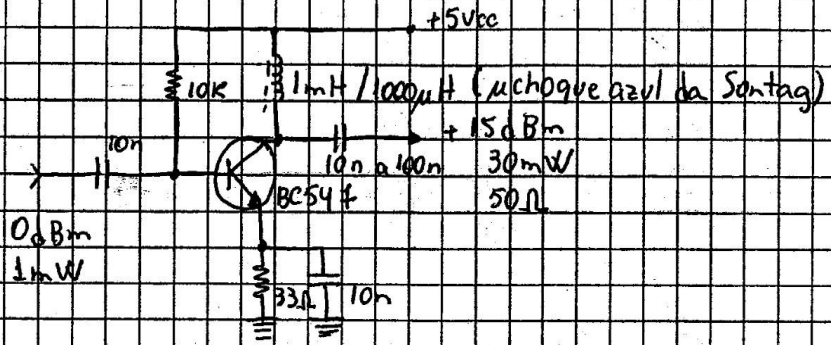 +5Vcc
10K
1mH / 1000µH (µchoque azul da Sontag)
10n
+15dBm
10n a 100n
30mW
BC547
50Ω
0dBm
1mW
33Ω
10n